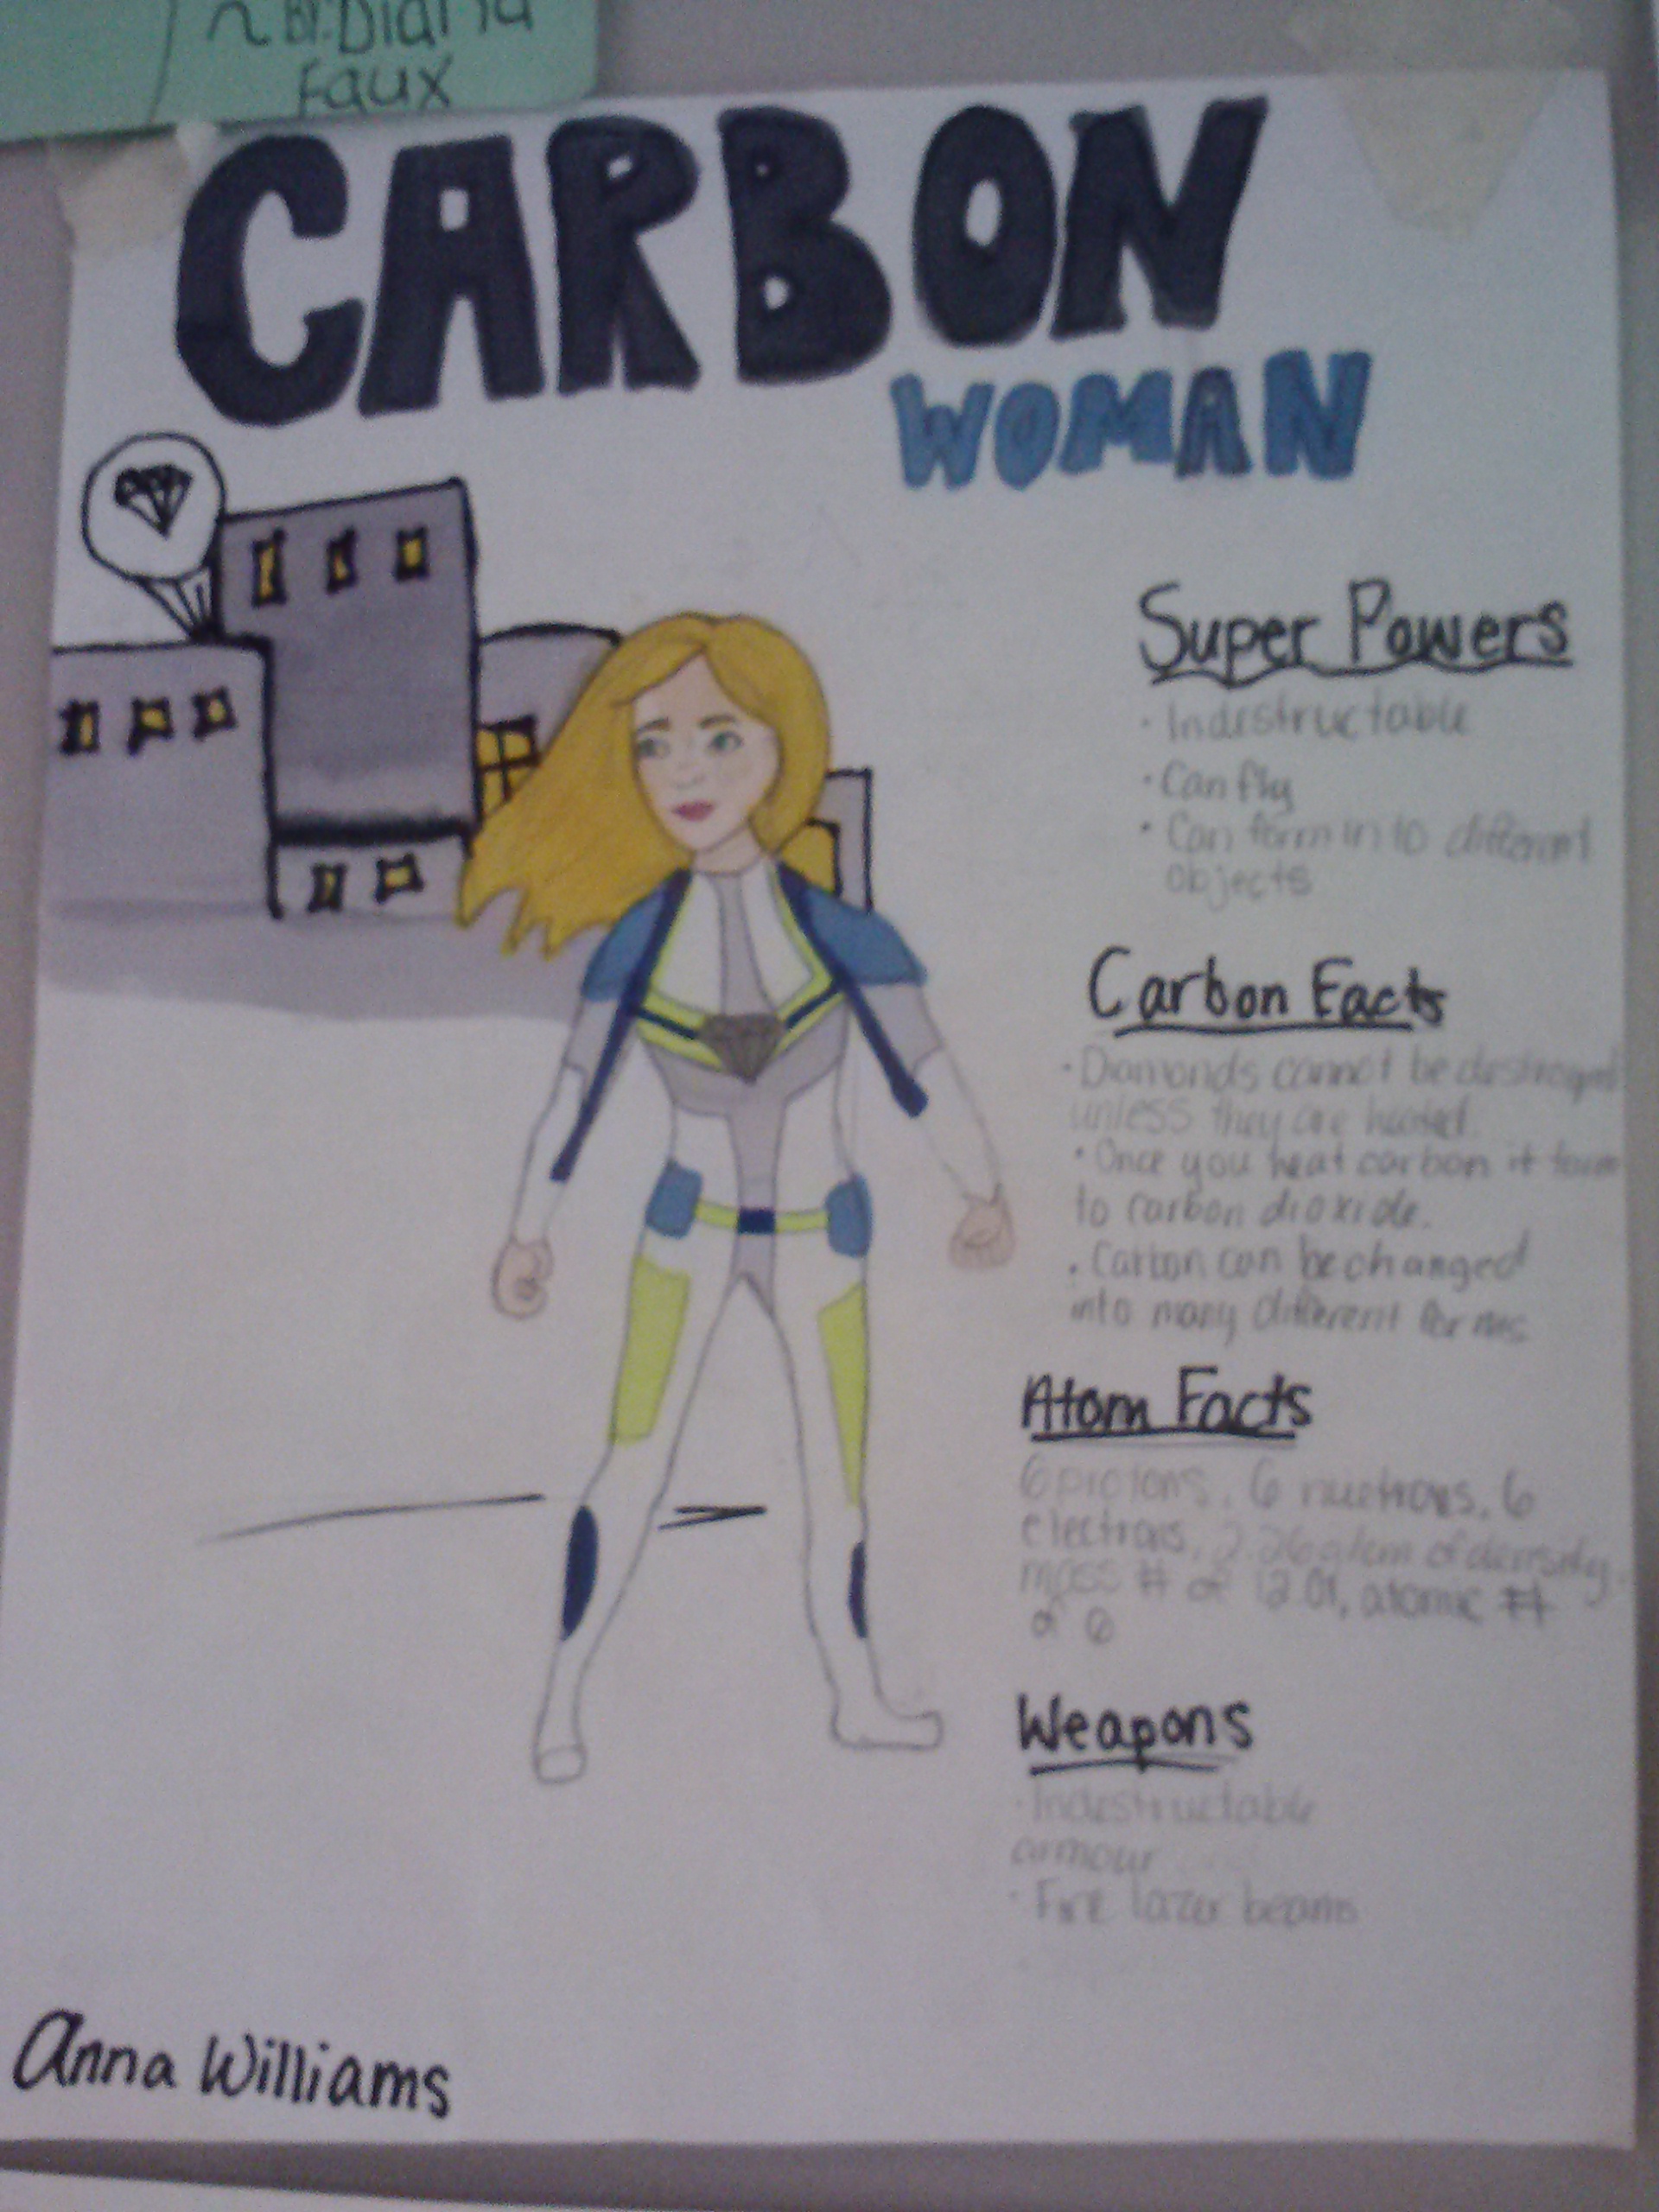 ~ BY: Diana
Faux
CARBON
WOMAN
Super Powers
· Indestructable
· Can fly
· Can form in to different
objects
Carbon Facts
· Diamonds cannot be destroyed
unless they are heated.
· Once you heat carbon it turns
to carbon dioxide.
· Carbon can be changed
into many different forms
Atom Facts
6 protons, 6 nuetrons, 6
electrons, 2.26 g/cm of density,
mass # of 12.01, atomic #
of 6
Weapons
· Indestructable
armour
· Fire lazer beams
Anna Williams